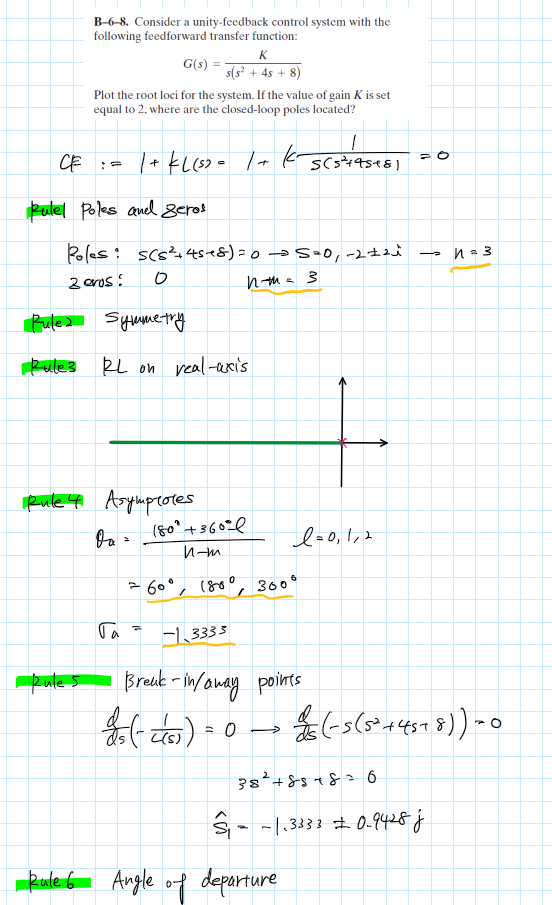 B–6–8. Consider a unity-feedback control system with the
following feedforward transfer function:
G(s) = K / s(s² + 4s + 8)
Plot the root loci for the system. If the value of gain K is set
equal to 2, where are the closed-loop poles located?
CE := 1 + kL(s) = 1 + k 1 / s(s²+4s+8) = 0
Rule1 Poles and zeros
Poles : s(s²+4s+8) = 0 → s=0, -2±2i → n = 3
zeros : 0 n-m = 3
Rule2 Symmetry
Rule3 RL on real-axis
Rule 4 Asymptotes
θa = 180° + 360°l / n-m l = 0, 1, 2
= 60°, 180°, 300°
σa = -1.3333
Rule 5 Break-in/away points
d/ds (- 1/L(s)) = 0 → d/ds (-s(s²+4s+8)) = 0
3s²+8s+8 = 0
ŝ₁ = -1.3333 ± 0.9428j
Rule 6 Angle of departure